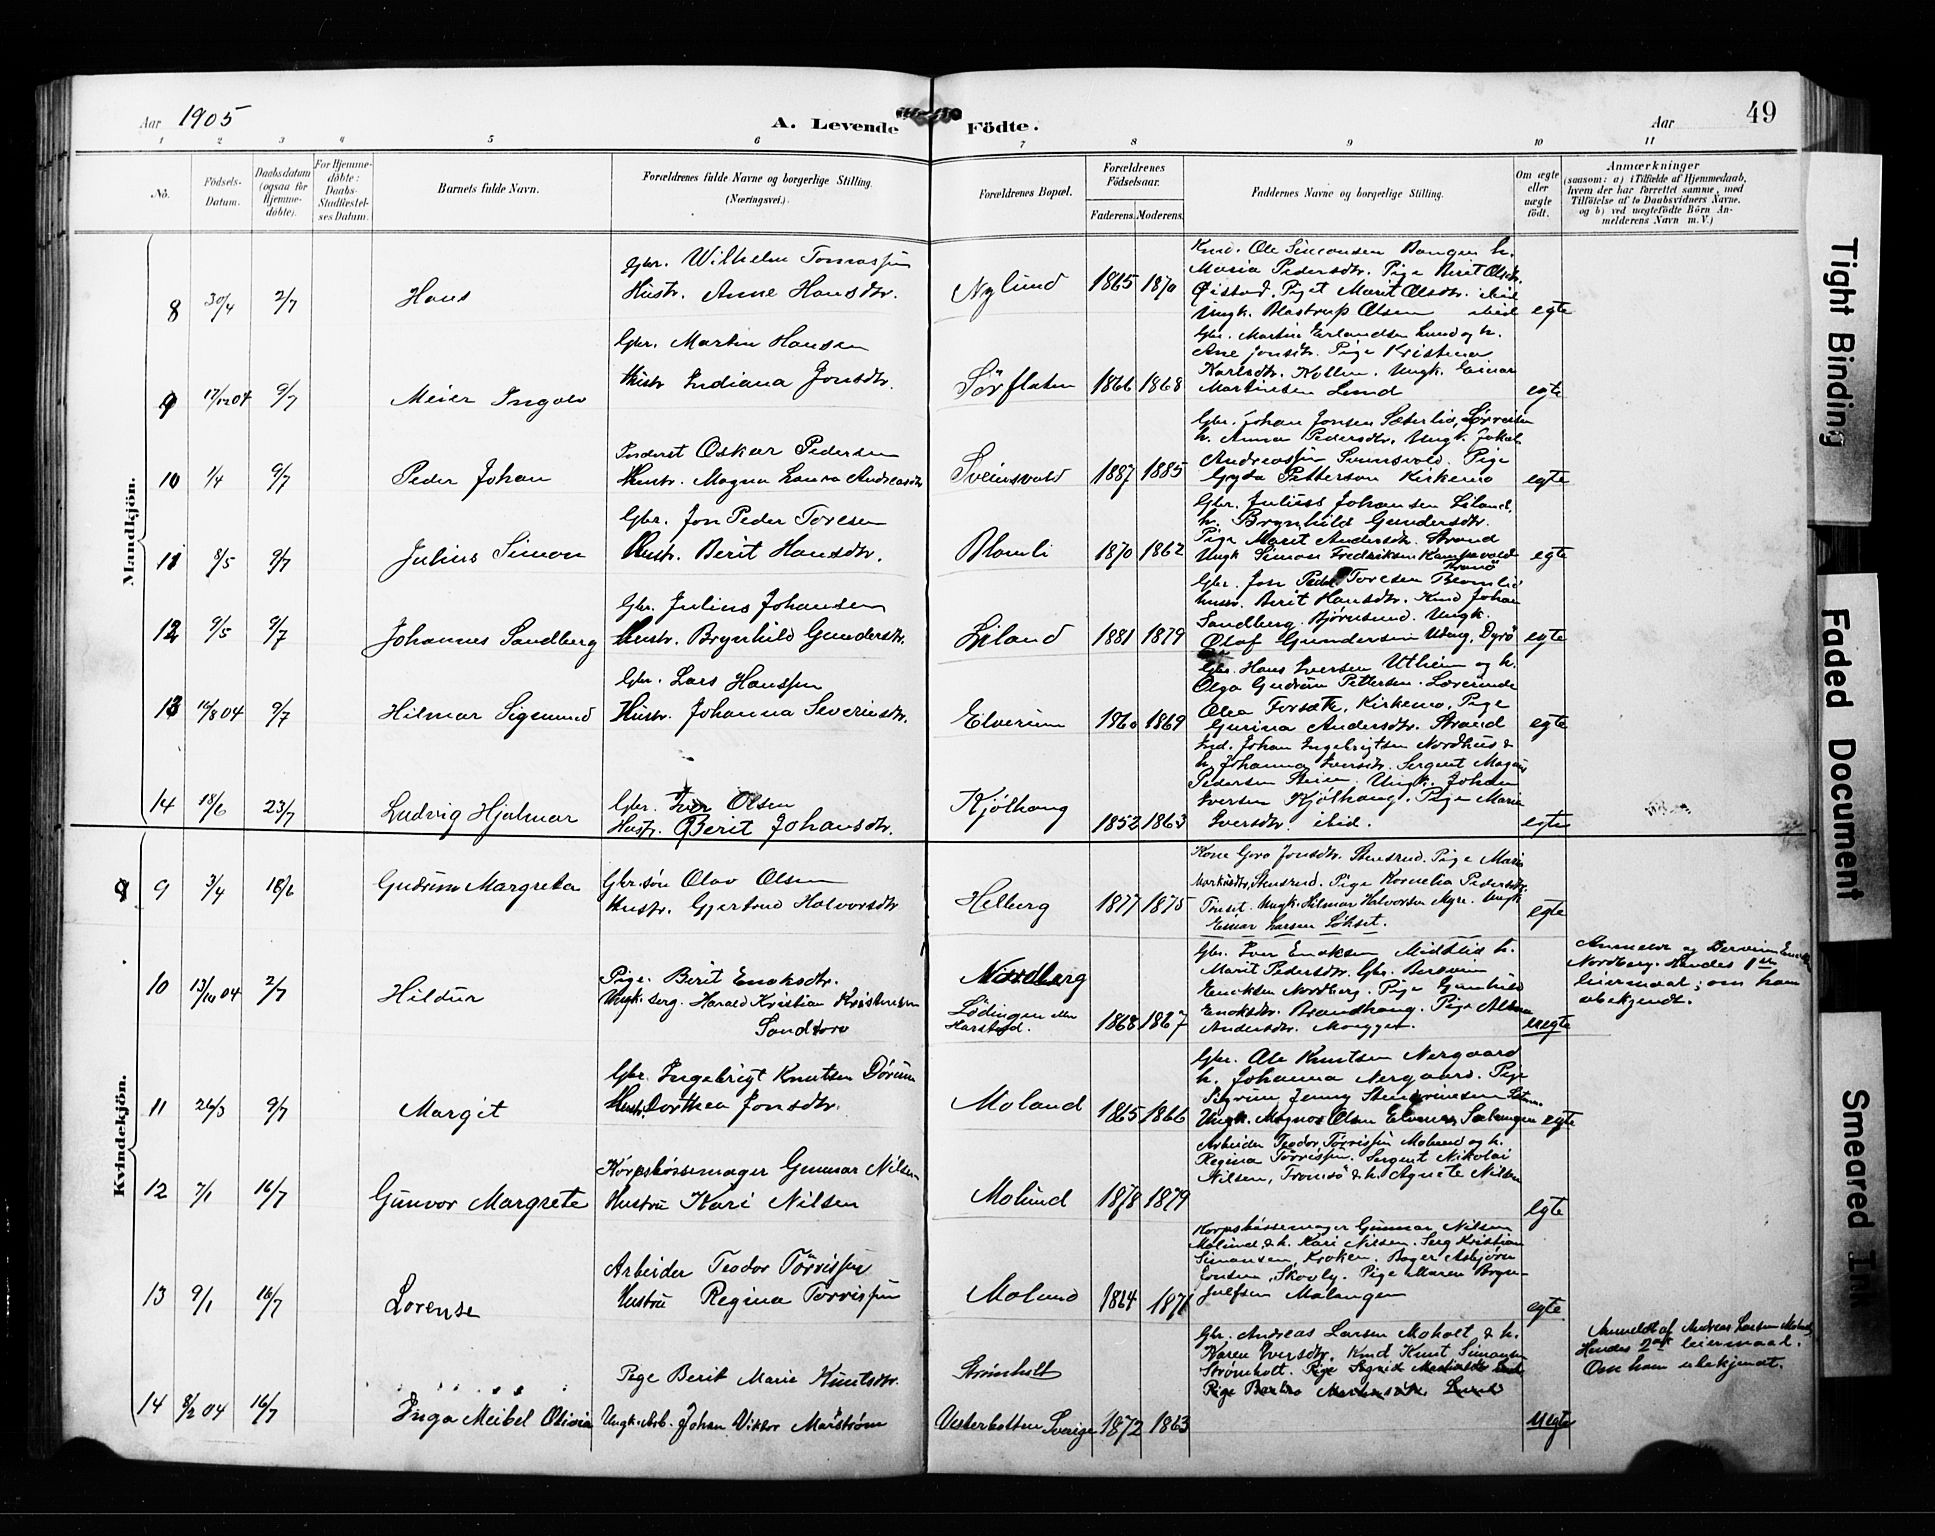 Aar 1905
A. Levende Födte.
Aar
49
1 2 3 4 5 6 7 8 9 10 11
No.
Födsels-Datum.
Daabsdatum (ogsaa for Hjemme-döbte).
For Hjemme-döbte: Daabs-Stadfæstel-ses Datum.
Barnets fulde Navn.
Forældrenes fulde Navne og borgerlige Stilling. (Næringsvei.)
Forældrenes Bopæl.
Forældrenes Födselsaar.
Faderens. Moderens.
Faddernes Navne og borgerlige Stilling.
Om ægte eller uægte født.
Anmærkninger
(saasom: a) i Tilfælde af Hjemmedaab,
hvem der har forrettet samme, med
Tilföielse af to Daabsvidners Navne,
og b) ved uægtefödte Börn An-
melderens Navn m. V.)
Mandkjön.
8 30/4 2/7 Hans
Gbr. Wilhelm Tomassen
Hustr. Anne Hansdtr.
Nylund 1865 1870
Kmd. Ole Simonsen Bangen h.
Maria Pedersdtr. Pige Berit Olsdtr.
Øistad. Pige Marit Olsdtr. ibid
Ungk. Blastrup Olsen ibid
egte
9 17/12 04 9/7 Meier Ingolv
Gbr. Martin Hansen
Hustr Indiana Jonsdtr.
Sörflaten 1866 1868
Gbr. Martin Erlandsen Lund og h.
Ane Jonsdtr. Pige Kristina
Karlsdtr. Kollen. Ungk. Einar
Martinsen Lund
egte
10 1/4 9/7 Peder Johan
Inderst Oskar Pedersen
Hustr. Magna Laura Andreasdtr
Sveinsvold 1887 1885
Gbr. Johan Jonsen Sæterlid, Sörreisen
h. Anna Pedersdtr. Ungk. Jokal
Andreassen Sveinsvold. Pige
Gyda Petterson Kirkemo
egte
11 8/5 9/7 Julius Simon
Gbr. Jon Peder Toresen
Hustr. Berit Hansdtr.
Blomli 1870 1862
Gbr. Julius Johansen Liland,
h. Brynhild Gundersdtr.
Pige Marit Andersdtr. Strand
Ungk Simon Fredriksen Kampevold
egte
12 9/5 9/7 Johannes Sandberg
Gbr. Julius Johansen
Hustr. Brynhild Gundersdtr.
Liland 1881 1879
Gbr. Jon Peder Toresen Blomlid
hustr. Berit Hansdtr. Kmd Johan
Sandberg. Bjørnsund. Ungk.
Olaf Gundersen Dyrö
egte
13 16/8 04 9/7 Hilmar Sigmund
Gbr. Lars Hanssen
Hustr. Johanna Severinsdtr.
Elverum 1860 1869
Gbr. Hans Iversen Utheim og h.
Olga Gudrun Pettersen. Lærerinde
Olea Forsæth, Kirkemo, Pige
Gurina Andersdtr. Strand
egte
14 18/6 23/7 Ludvig Hjalmar
Gbr. Iver Olsen
Hustr. Berit Johansdtr.
Kjölhaug 1852 1863
Ind. Johan Ingebrigtsen Nordhus &
h. Johanna Iversdtr. Sergent Magnus
Pedersen Steien. Ungk. Johan
Iversen Kjölhaug. Pige Marie
Iversdtr. ibid.
egte
Kvindekjön.
9 3/4 18/6 Gudrun Margreta
Gbr. sön Olav Olsen
Hustr. Gjertrud Halvorsdtr
Helberg 1877 1875
Kone Goro Jonsdtr. Stensrud. Pige Marie
Markusdtr, Stensrud. Pige Kornelia Pedersdtr.
Tunset. Ungk. Hilmar Halvorsen Myre. Ungk
Einar Larsen Løkset.
egte
10 13/10 04 2/7 Hildur
Pige. Berit Enoksdtr.
Ungk. Serg. Harald Kristian Kristensen
Sandtorv
Nordberg
Lödingen eller
Harstad. 1868 1867
Gbr. Iver Enoksen Midtlid h.
Marit Pedersdtr. Gbr. Bersvein
Enoksen Nordberg. Pige Gunhild
Enoksdtr. Brandhaug. Pige Altma
Andersdtr. Moegger.
uegte
Anmeldr og Bersvein Enoksen
Nordberg. Hendes 1ste
leiermaal; om ham
ubekjendt.
11 26/3 9/7 Margit
Gbr. Ingebrigt Knutsen Dörum
Hustr. Dorthea Jonsdtr.
Moland 1865 1866
Gbr. Ole Knutsen Nergaard
h. Johanna Nergaard. Pige
Sigrun Jenny
Ungk. Magnos Olsen Elvenes, Salangen
egte
12 7/1 16/7 Gunvor Margrete
Korpsbössemager Gunnar Nilsen
Hustru Kari Nilsen
Molund 1878 1879
Arbeider Teodor Törrissen Molund og h.
Regina Törrissen. Sergent Nikolai
Nilsen, Tromsö & h. Agnete Nilsen
egte
13 9/1 16/7 Lorense
Arbeider Teodor Törrissen
Hustru Regina Törrissen
Molund 1864 1871
Korpsbössemager Gunnar Nilsen
Molund & h. Kari Nilsen. Serg Kristian
Simonsen Kroken. Bager Asbjörn
Jonsen, Skovly. Pige Maren Bryn-
julfsen Malangen
egte
14 8/2 04 16/7 Inga Meibel Olivia
Pige Berit Marie Knutsdtr.
Ungk. Arb. Johan Viktor Marström
Strömholt
Vesterbotten Sverige 1872 1863
Gbr. Andreas Larsen Moholt & h.
Karen Iversdtr. Kmd Knut Simonsen
Strømholt. Pige Sigrid
Pige Lund
uegte
Anmeldt af Andreas Larsen Moholt,
Hendes 2det leiermaal.
Om ham ubekjendt.
Tight Binding
Faded Document
Smeared Ink